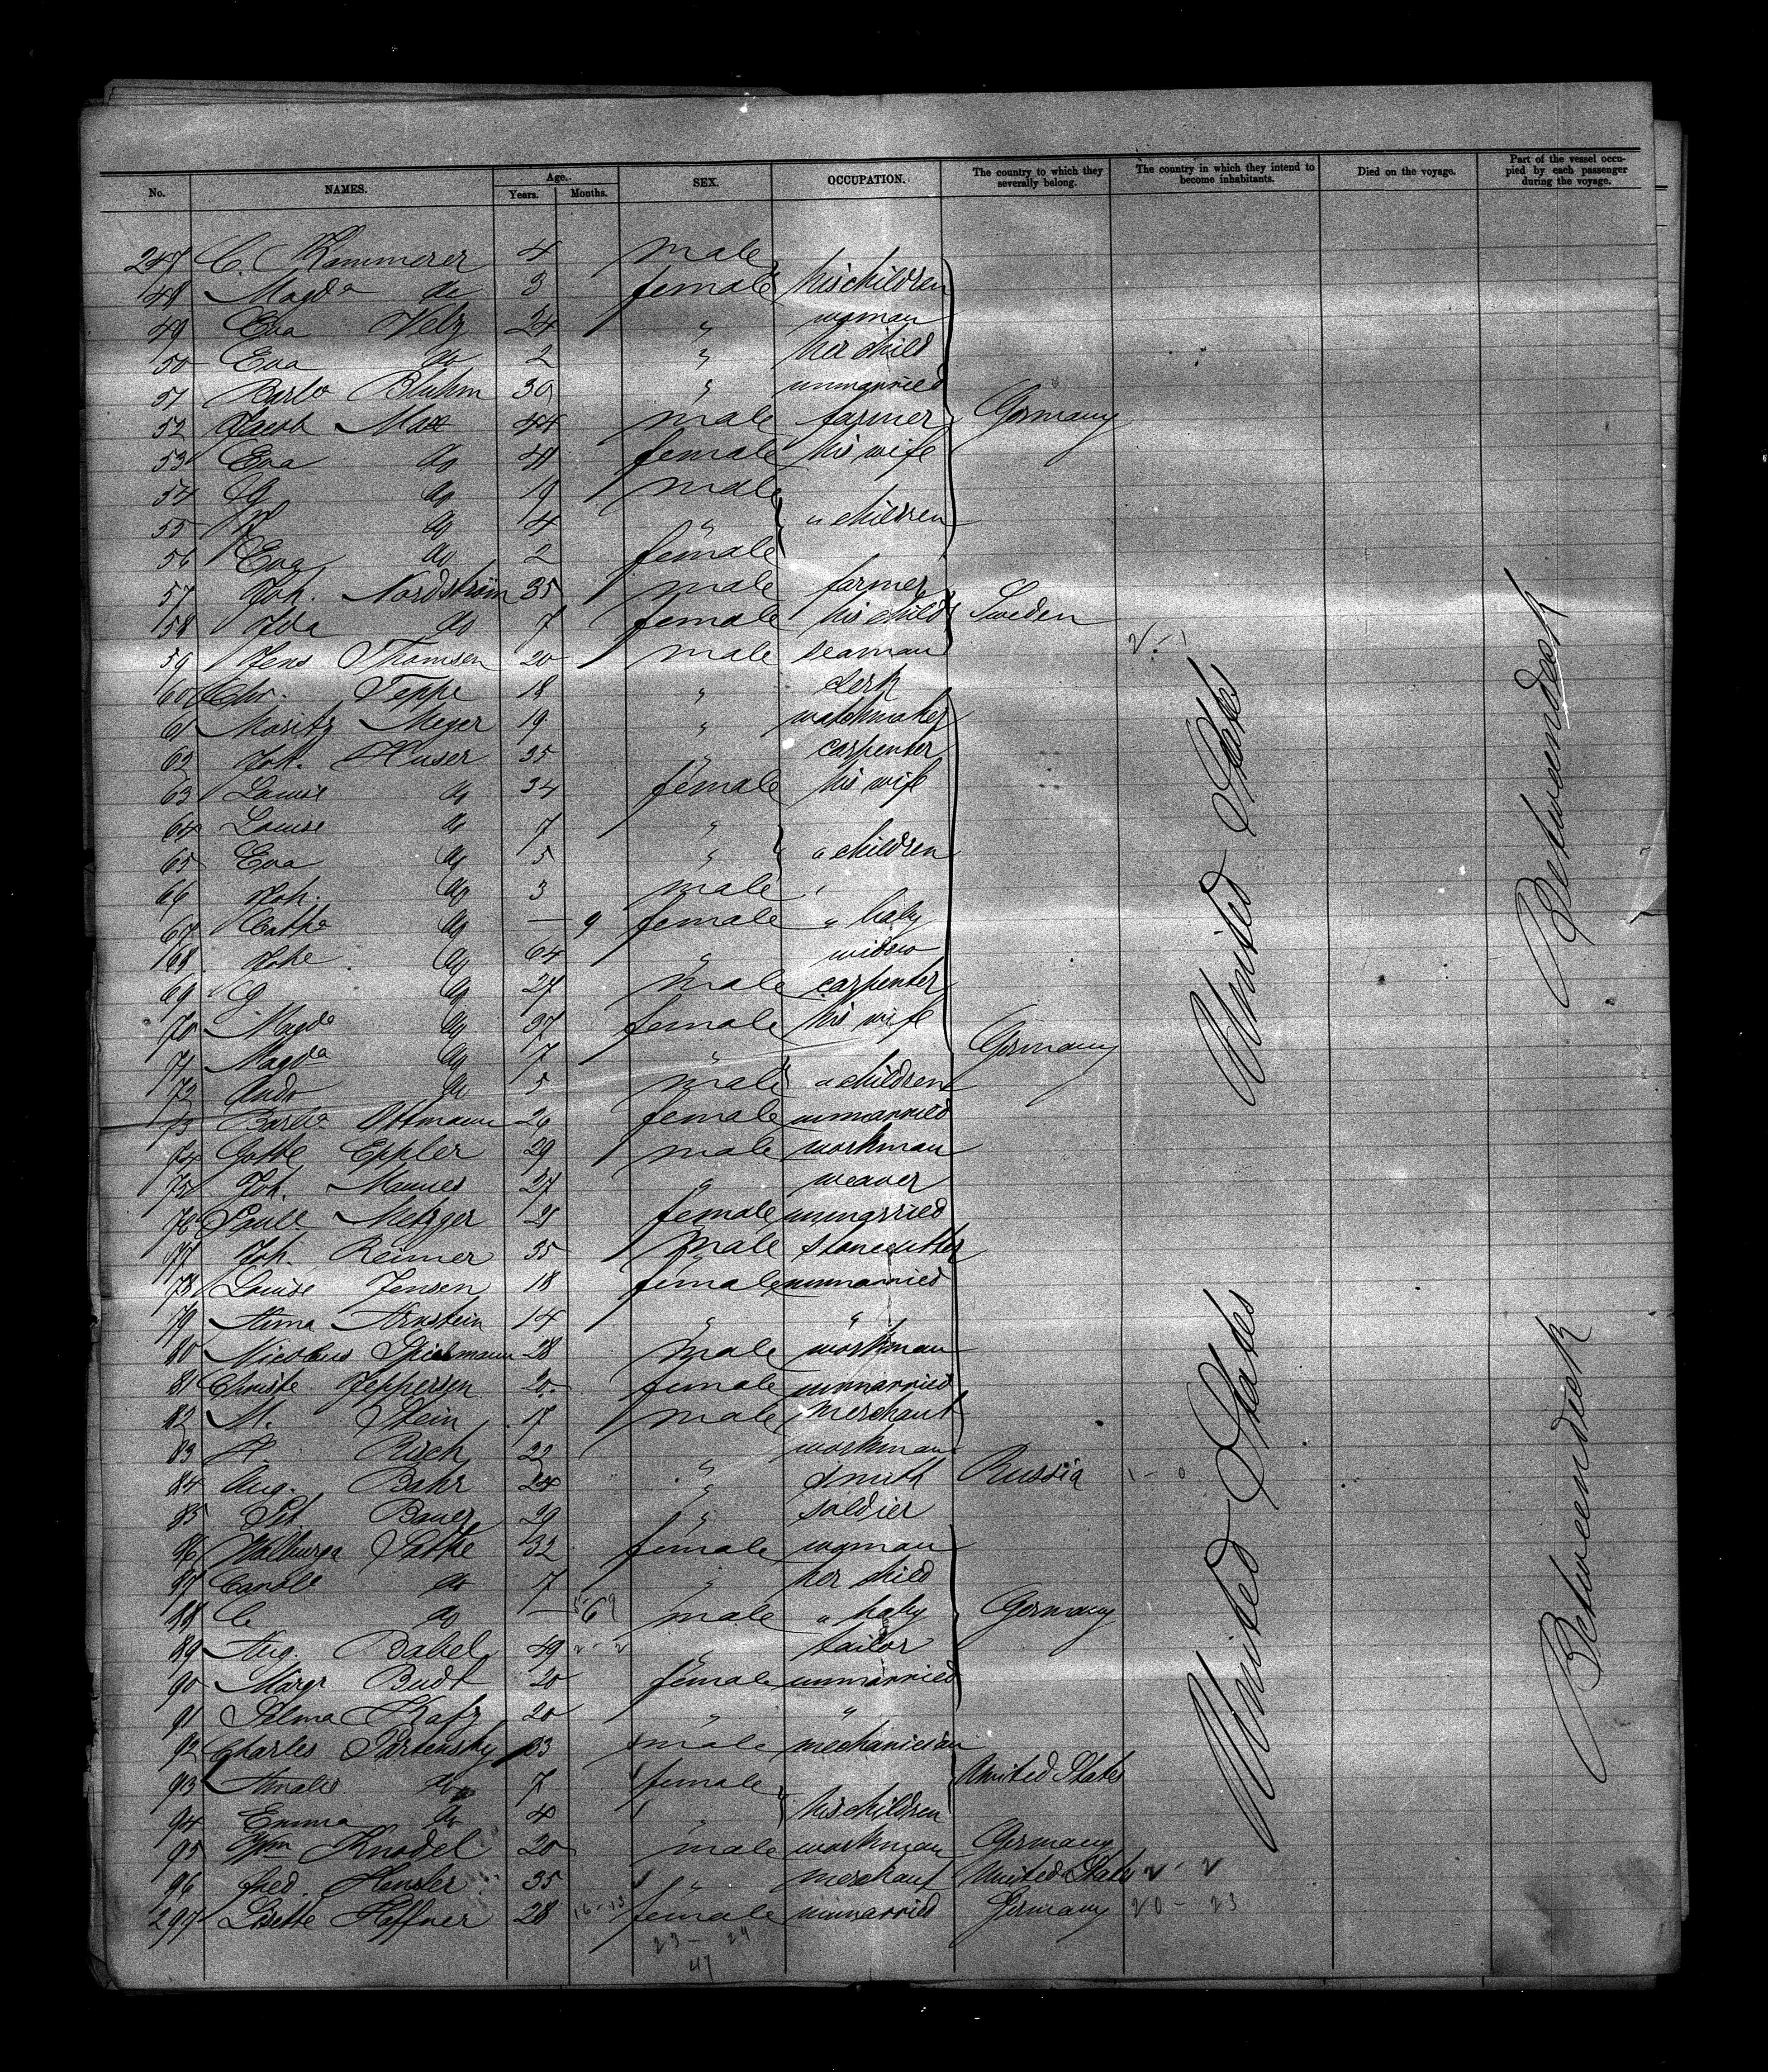 No. NAMES. Age. Years. Months. SEX. OCCUPATION. The country to which they severally belong. The country in which they intend to become inhabitants. Died on the voyage. Part of the vessel occupied by each passenger during the voyage.
247 C. Kammerer 4 male
48 Magda do 3 female his children
49 Eva Velz 24 " woman
50 Eva do 2 " her child
51 Barba Bluhm 30 " unmarried
52 Jacob Max 44 male farmer Germany
53 Eva do 41 female his wife
54 G do 19 male
55 do 4 " " children
56 Eva do 2 female
57 Joh. Nordström 35 male farmer
58 Ida do 7 female his child Sweden
59 Jens Thomsen 20 male seaman
60 Chr. Teppe 18 " clerk
61 Moritz Meyer 19 " watchmaker
62 Joh. Huser 35 " carpenter
63 Louise do 34 female his wife
64 Louise do 7 "
65 Eva do 5 " " children
66 Joh. do 3 male "
67 Catha do — 9 female " baby
68 Johe do 64 " widow
69 G do 27 male carpenter
70 Magda do 27 female his wife
71 Magda do 7 " Germany
72 Andr do 5 male " children
73 Barba Ottmann 26 female unmarried
74 Gottl Eppler 29 male workman
75 Joh. Mannes 27 " weaver
76 Paule Metzger 21 female unmarried
77 Joh. Reimer 35 male stonecutter
78 Louise Jensen 18 female unmarried
79 Anna Arnstein 14 " "
80 Nicolaus Spielmann 28 male workman
81 Christe Jeppersen 20 female unmarried
82 M. Stein 17 male merchant
83 Risch 22 workman
84 Aug. Bahr 24 " smith Russia
85 Bauer 29 " soldier
86 Walburga 32 female woman
87 Carole do 7 " her child
88 C do — 6 male " baby Germany
89 Aug. Babel 49 " tailor
90 Margr Budt 20 female unmarried
91 Selma Katz 20 " "
92 Charles Partensky 33 male mechanician
93 Amalie do 7 female United States
94 Emma do 4 " his children
95 Wm Knodel 20 male workman Germany
96 Fred. Hensler 35 " merchant United States
297 Lisette Haffner 28 female unmarried Germany 20 - 23
23 - 24
47
United States
United States
Betweendeck
Betweendeck